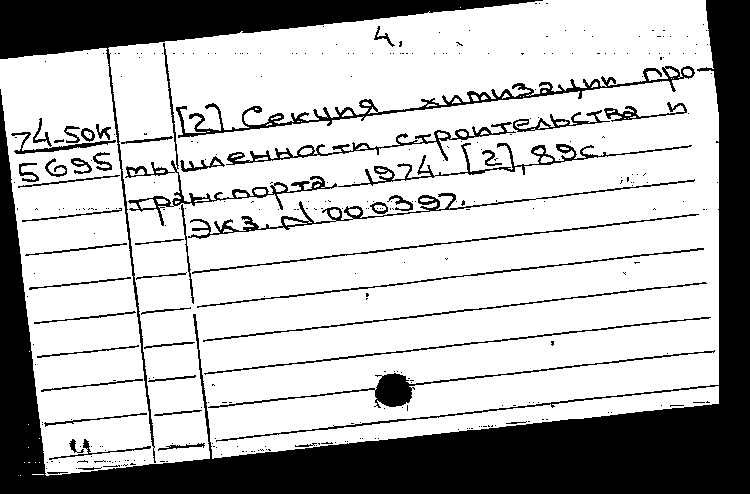 4.
[2]. Секция химизации про-
74-50к
5695
мышленности, строительства и
транспорта. 1974. [2], 89с.
Экз. N 000397.
и